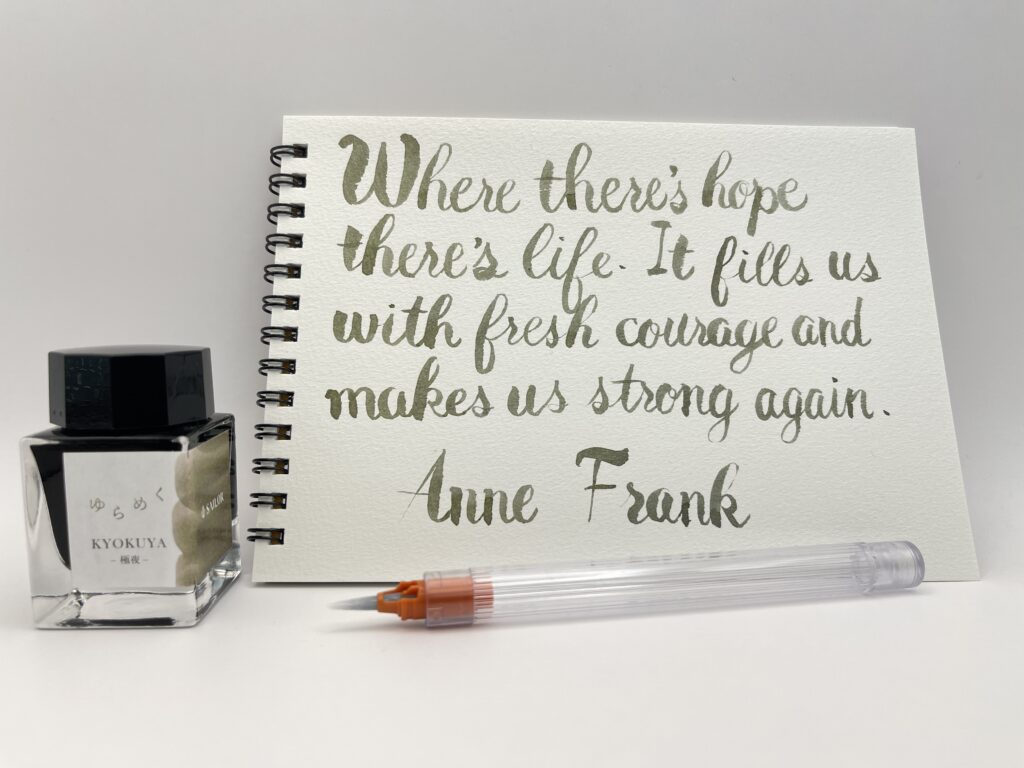 Where there's hope
there's life. It fills us
with fresh courage and
makes us strong again.
Anne Frank
ゆらめく
KYOKUYA
– 極夜 –
SAILOR